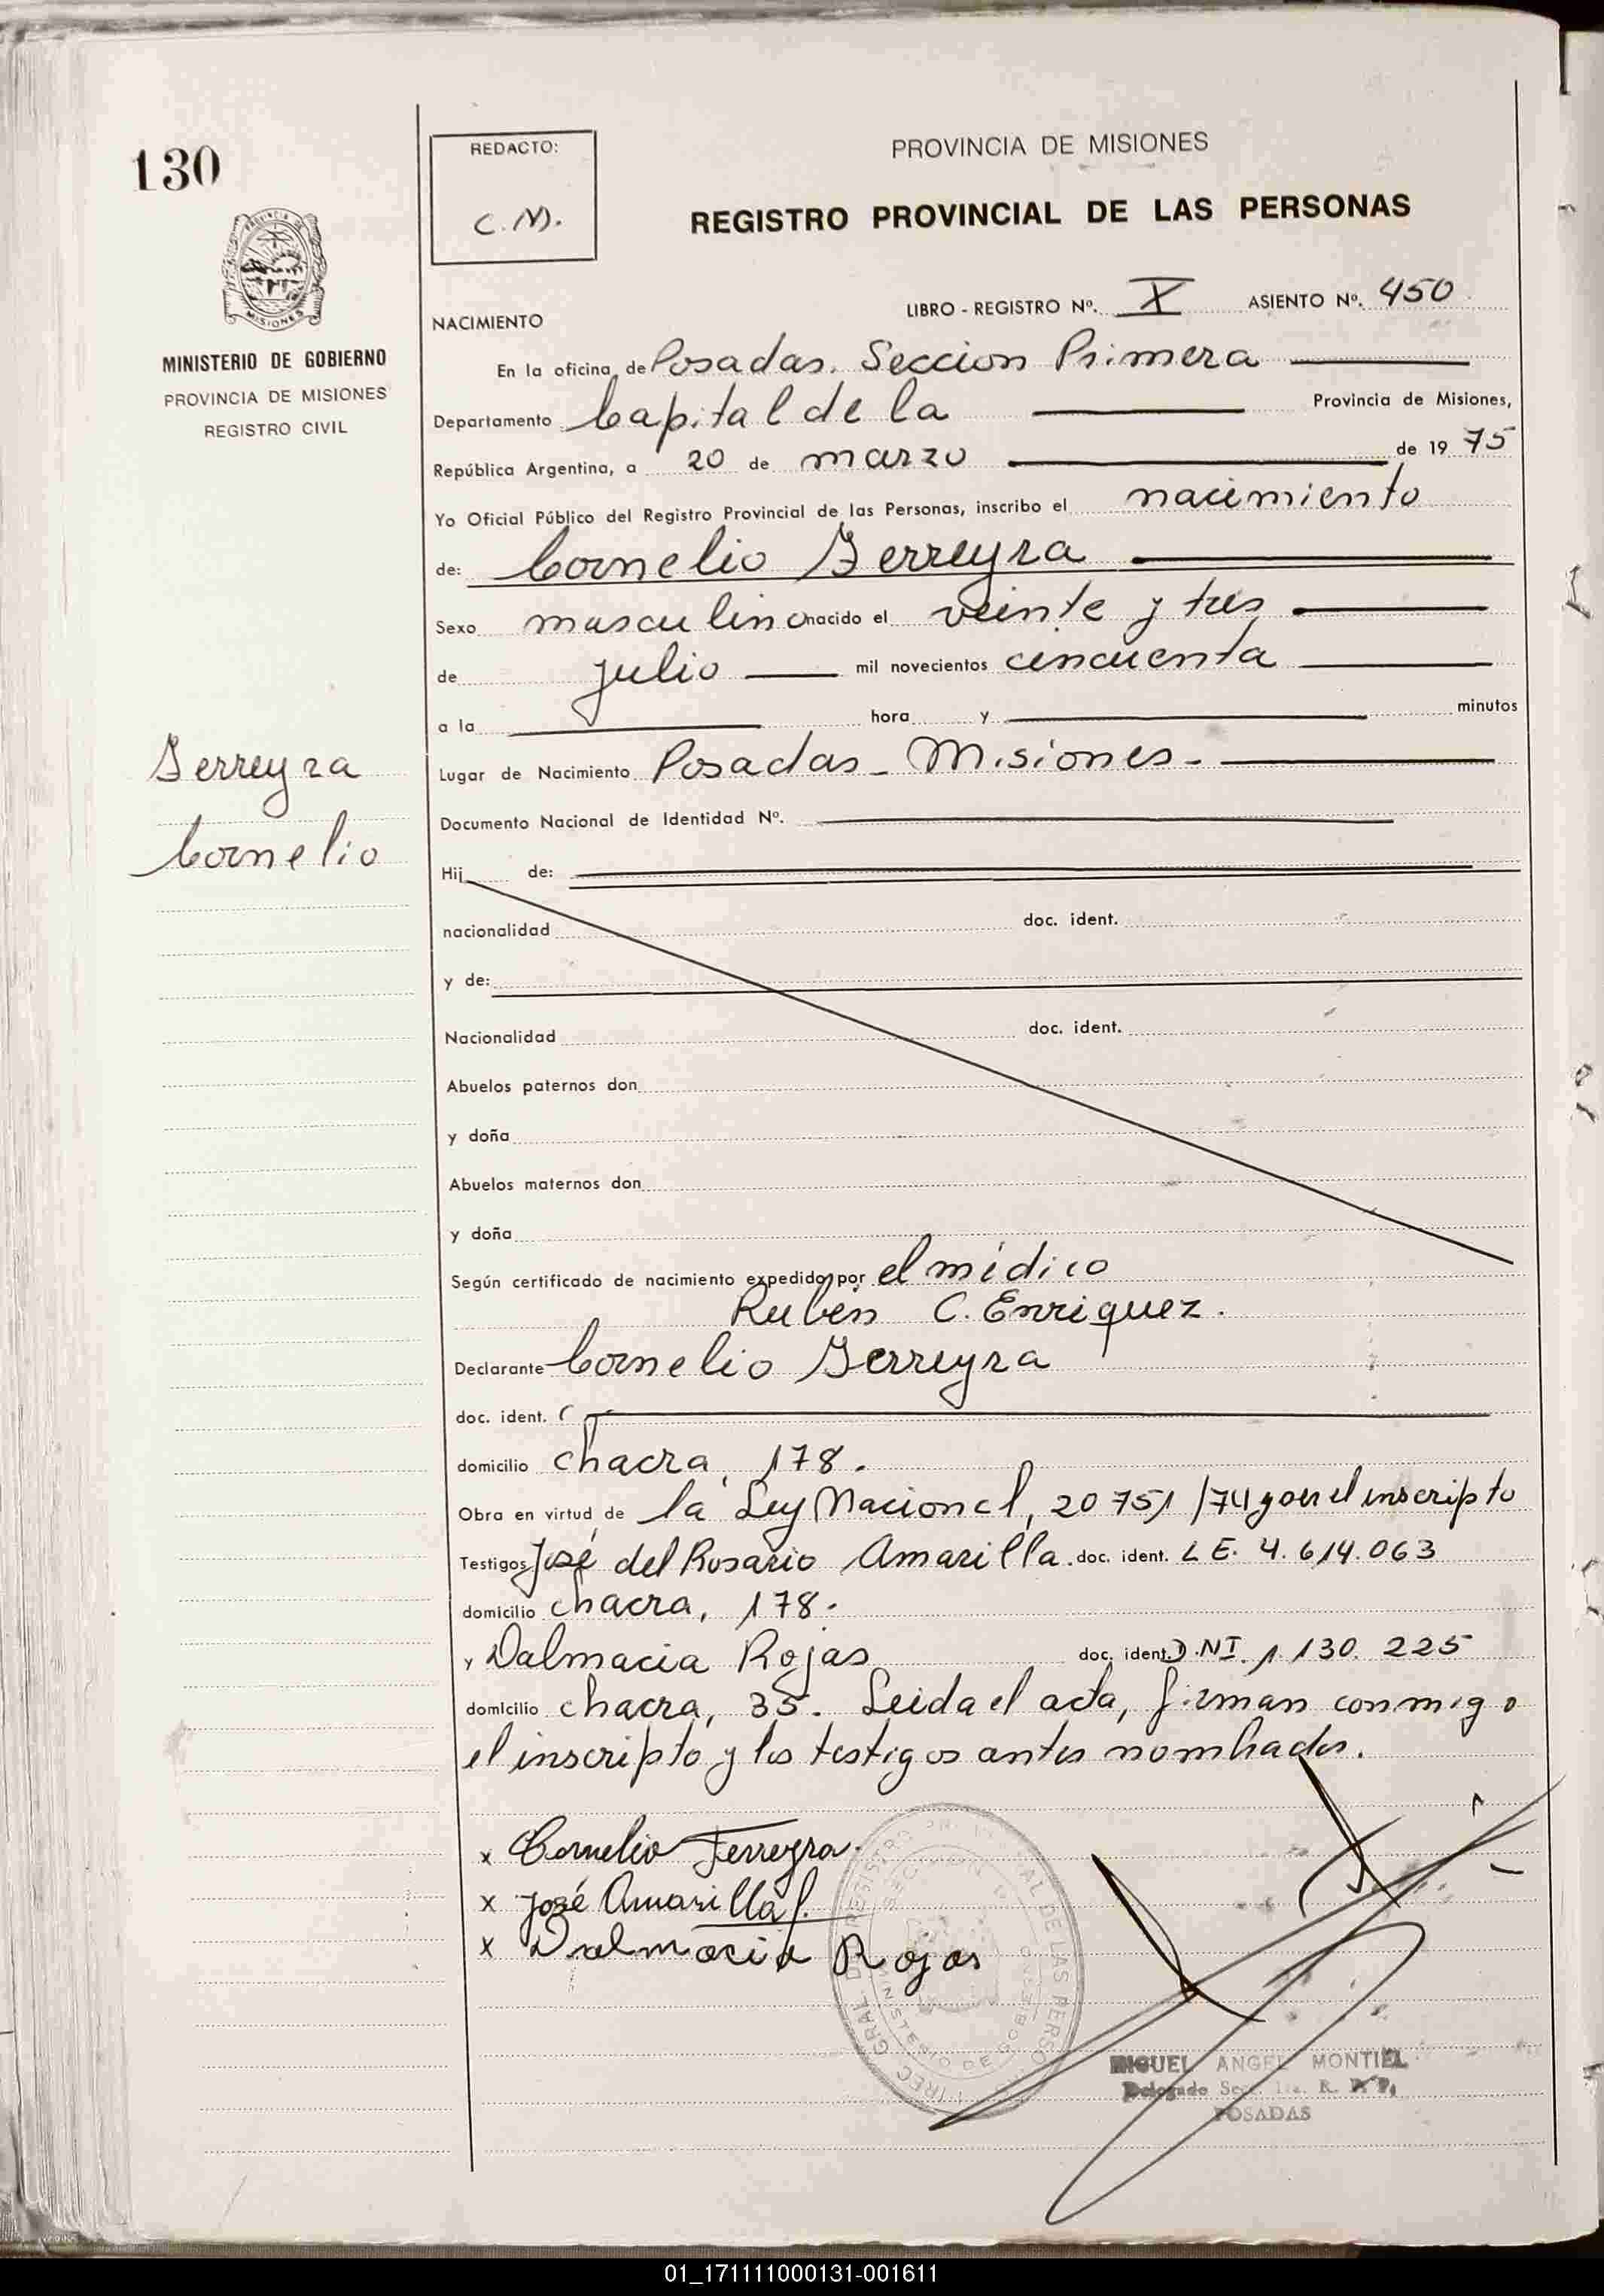 130
REDACTO:
C.M.
PROVINCIA DE MISIONES
REGISTRO PROVINCIAL DE LAS PERSONAS
PROVINCIA DE MISIONES
MINISTERIO DE GOBIERNO
PROVINCIA DE MISIONES
REGISTRO CIVIL
LIBRO - REGISTRO Nº. X ASIENTO Nº. 450
NACIMIENTO
En la oficina de Posadas. Seccion Primera
Departamento Capital de la Provincia de Misiones,
República Argentina, a 20 de marzo de 19 75
Yo Oficial Público del Registro Provincial de las Personas, inscribo el nacimiento
de: Cornelio Ferreyra
Sexo masculino nacido el veinte y tres
de julio mil novecientos cincuenta
a la hora y minutos
Ferreyra
Cornelio
Lugar de Nacimiento Posadas - Misiones -
Documento Nacional de Identidad Nº.
Hij de:
nacionalidad doc. ident.
y de:
Nacionalidad doc. ident.
Abuelos paternos don
y doña
Abuelos maternos don
y doña
Según certificado de nacimiento expedido por el médico
Rubén C. Enriquez.
Declarante Cornelio Ferreyra
doc. ident.
domicilio chacra, 178.
Obra en virtud de la Ley Nacional, 20 751/74 y por el inscripto
Testigos José del Rosario Amarilla. doc. ident. L E. 4.614.063
domicilio chacra, 178.
y Dalmacia Rojas doc. ident. D.NI. 1.130.225
domicilio chacra, 35. Leida el acta, firman conmigo
el inscripto y los testigos antes nombrados.
x Cornelio Ferreyra
x José Amarilla
x Dalmacia Rojas
MINISTERIO DE GOBIERNO
MIGUEL ANGEL MONTIEL
Delegado Sec. 1ra. R. P. P.
POSADAS
01_171111000131-001611